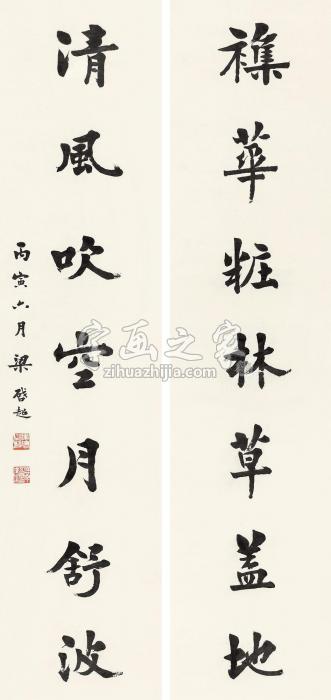 襍華粧林草盖地
清風吹空月舒波
丙寅六月梁啓超
字画之家
zihuazhijia.com